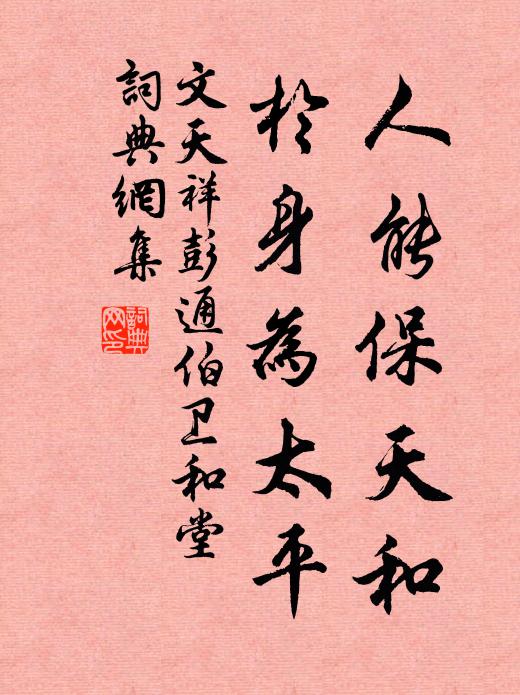 人能保天和
於身為太平
文天祥彭通伯卫和堂
詞典網集
詞典网印